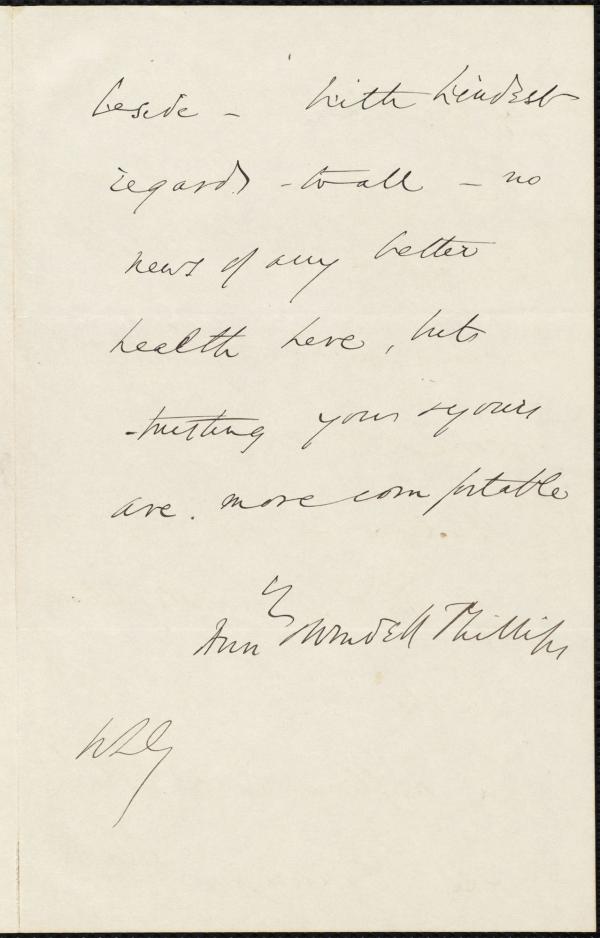 beside - With kindest
regards - to all - no
news of any better
health here, but
- trusting you & yours
are. more comfortable
Ann & Wendell Phillips
WLG